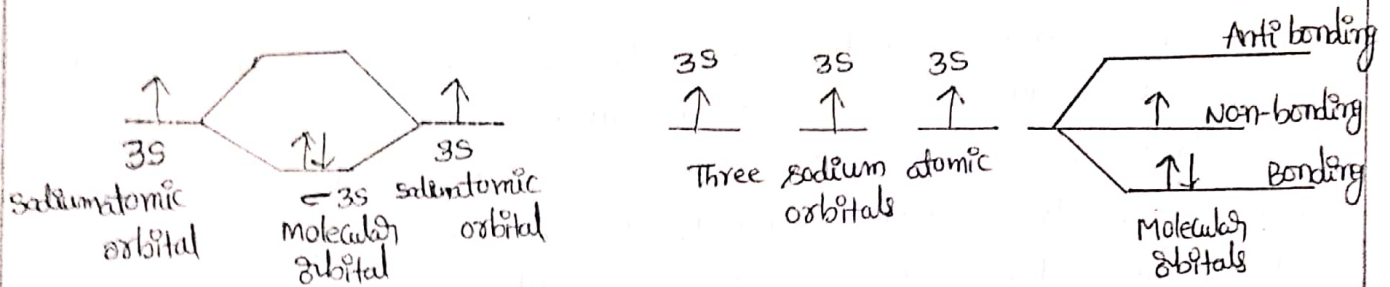 3S
3S
Sodiumatomic
orbital
3S
Molecular
orbital
orbital
3S 3S 3S
Three sodium atomic
orbitals
Anti bonding
Non-bonding
Bonding
Molecular
orbitals